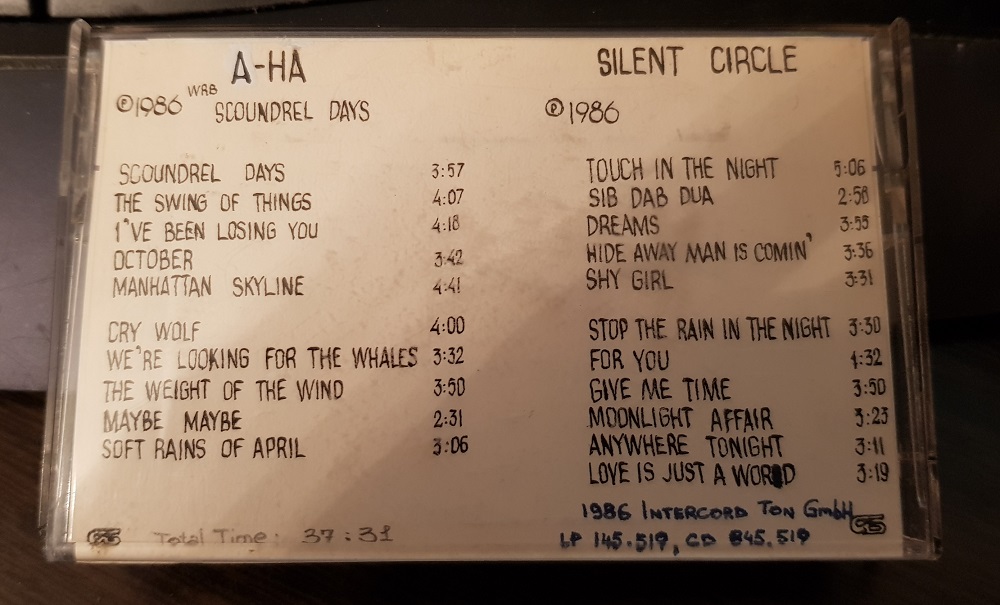 A-HA
℗1986 WRB SCOUNDREL DAYS
SCOUNDREL DAYS 3:57
THE SWING OF THINGS 4:07
I'VE BEEN LOSING YOU 4:18
OCTOBER 3:42
MANHATTAN SKYLINE 4:41
CRY WOLF 4:00
WE'RE LOOKING FOR THE WHALES 3:32
THE WEIGHT OF THE WIND 3:50
MAYBE MAYBE 2:31
SOFT RAINS OF APRIL 3:06
Total Time: 37:31
SILENT CIRCLE
℗1986
TOUCH IN THE NIGHT 5:06
SIB DAB DUA 2:58
DREAMS 3:55
HIDE AWAY MAN IS COMIN' 3:36
SHY GIRL 3:31
STOP THE RAIN IN THE NIGHT 3:30
FOR YOU 1:32
GIVE ME TIME 3:50
MOONLIGHT AFFAIR 3:23
ANYWHERE TONIGHT 3:11
LOVE IS JUST A WORD 3:19
1986 INTERCORD TON GmbH
LP 145.519, CD 845.519